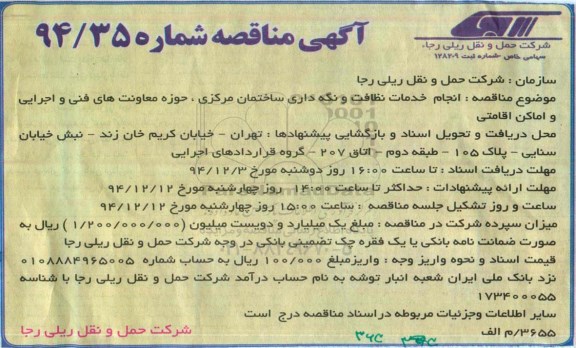 آگهی مناقصه شماره ۹۴/۳۵
شرکت حمل و نقل ریلی رجاء
سهامی خاص - شماره ثبت ۱۲۸۲۰۹
سازمان : شرکت حمل و نقل ریلی رجا
موضوع مناقصه : انجام خدمات نظافت و نگه داری ساختمان مرکزی ، حوزه معاونت های فنی و اجرایی
و اماکن اقامتی
محل دریافت و تحویل اسناد و بازگشایی پیشنهادها : تهران - خیابان کریم خان زند - نبش خیابان
سنایی - پلاک ۱۰۵ - طبقه دوم - اتاق ۲۰۷ - گروه قراردادهای اجرایی
مهلت دریافت اسناد : تا ساعت ۱۶:۰۰ روز دوشنبه مورخ ۹۴/۱۲/۳
مهلت ارائه پیشنهادات : حداکثر تا ساعت ۱۴:۰۰ روز چهارشنبه مورخ ۹۴/۱۲/۱۲
ساعت و روز تشکیل جلسه مناقصه : ساعت ۱۵:۰۰ روز چهارشنبه مورخ ۹۴/۱۲/۱۲
میزان سپرده شرکت در مناقصه : مبلغ یک میلیارد و دویست میلیون (۱/۲۰۰/۰۰۰/۰۰۰) ریال به
صورت ضمانت نامه بانکی یا یک فقره چک تضمینی بانکی در وجه شرکت حمل و نقل ریلی رجا
قیمت اسناد و نحوه واریز وجه : واریزمبلغ ۱۰۰/۰۰۰ ریال به حساب شماره ۰۱۰۸۸۸۴۹۶۵۰۰۵
نزد بانک ملی ایران شعبه انبار توشه به نام حساب درآمد شرکت حمل و نقل ریلی رجا با شناسه
۱۷۳۴۰۰۰۵۵
سایر اطلاعات وجزئیات مربوطه دراسناد مناقصه درج است
۳۶۵۵/م الف
شرکت حمل و نقل ریلی رجا